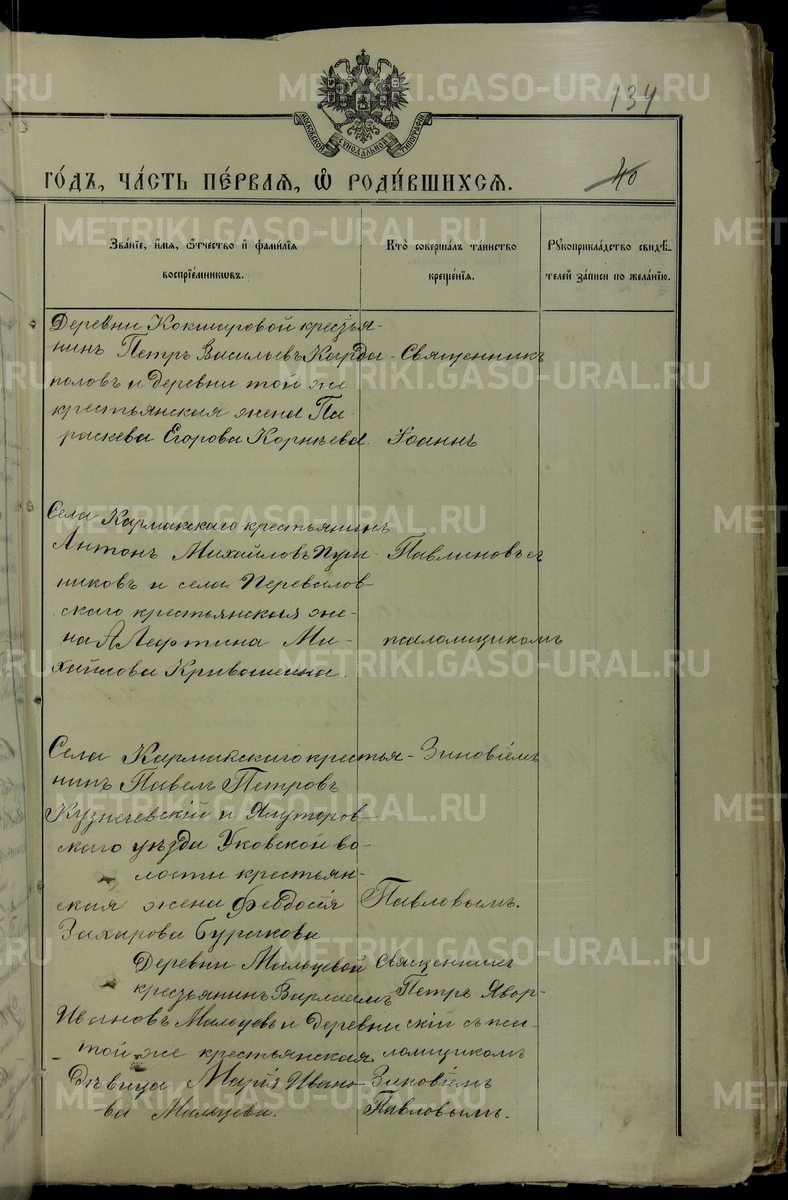 METRIKI.GASO-URAL.RU
134
МОСКОВСКОЙ СѴНОДАЛЬНОЙ ТИПОГРАФІИ
ГО́ДЪ, ЧА́СТЬ ПЕ́РВАЯ, Ѡ РОДИ́ВШИХСЯ.
40
Зва́ніе, и́мя, ѻ́тчество и҆ фами́лія
воспріе́мниковъ.
Кто̀ соверша́лъ та́инство
креще́нія.
Рꙋкоприкла́дство свидѣ́-
телей за́писи по жела́нію.
Деревни Кокшаровой кресть̀я-
нинъ Петръ Васильевъ Карда-
половъ и деревни той же
крестьянская жена Па-
раскева Егорова Корнѣева.
Священникъ
Іоаннъ
Села Кармакскаго крестьянинъ
Антонъ Михайловъ Пуш-
никовъ и села Перевалов-
скаго крестьянская же-
на Алефтина Ми-
хайлова Кривошеина.
Павлиновъ съ
псаломщикомъ
Села Кармакскаго крестья-
нинъ Павелъ Петровъ
Кузнечевскій и Ялуторов-
скаго уѣзда Уковской во-
лости крестьян-
ская жена Феодосія
Захарова Буракова
Зиновіемъ
Павловымъ.
Деревни Мальцевой
крестьянинъ Варлаамъ
Ивановъ Мальцевъ и деревни
той же крестьянская
дѣвица Марія Ивано-
ва Мальцева.
Священникъ
Петръ Явор-
скій съ пса-
ломщикомъ
Зиновіемъ
Павловымъ.